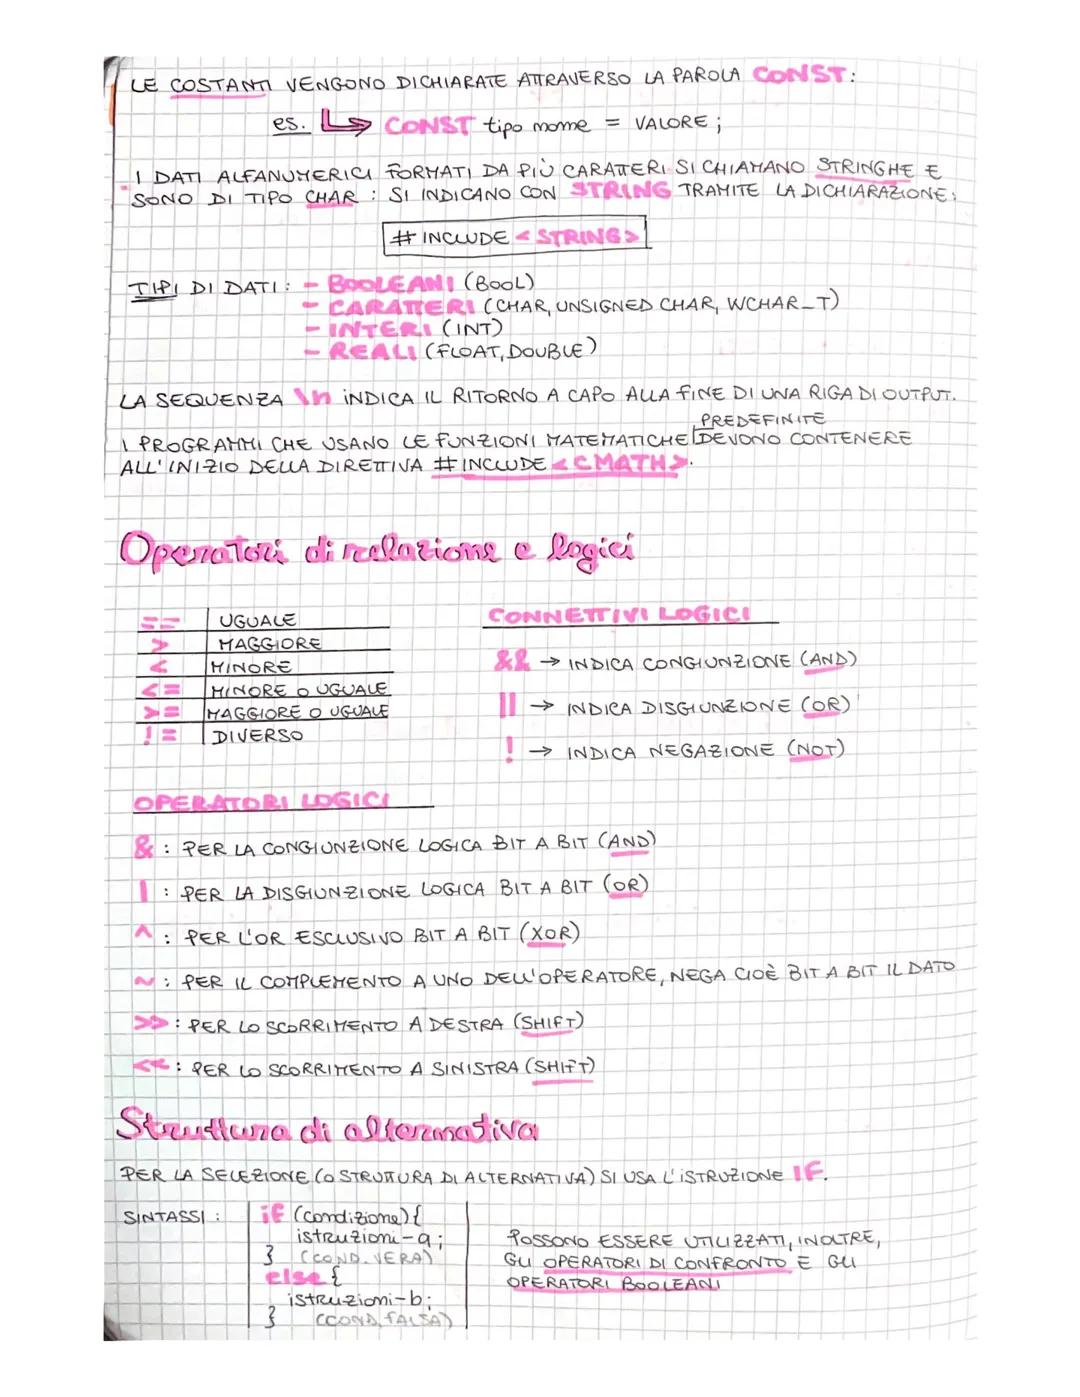 LE COSTANTI VENGONO DICHIARATE ATTRAVERSO LA PAROLA CONST:
es. CONST tipo nome = VALORE;
I DATI ALFANUMERICI FORMATI DA PIÙ CARATTERI SI CHIAMANO STRINGHE E
SONO DI TIPO CHAR : SI INDICANO CON STRING TRAMITE LA DICHIARAZIONE:
# INCLUDE <STRING>
TIPI DI DATI: - BOOLEANI (BOOL)
- CARATTERI (CHAR, UNSIGNED CHAR, WCHAR_T)
- INTERI (INT)
- REALI (FLOAT, DOUBLE)
LA SEQUENZA \n INDICA IL RITORNO A CAPO ALLA FINE DI UNA RIGA DI OUTPUT.
I PROGRAMMI CHE USANO LE FUNZIONI MATEMATICHE PREDEFINITE DEVONO CONTENERE
ALL'INIZIO DELLA DIRETTIVA #INCLUDE <CMATH>.
Operatori di relazione e logici
== UGUALE
> MAGGIORE
< MINORE
<= MINORE O UGUALE
>= MAGGIORE O UGUALE
!= DIVERSO
CONNETTIVI LOGICI
&& → INDICA CONGIUNZIONE (AND)
|| → INDICA DISGIUNZIONE (OR)
! → INDICA NEGAZIONE (NOT)
OPERATORI LOGICI
& : PER LA CONGIUNZIONE LOGICA BIT A BIT (AND)
| : PER LA DISGIUNZIONE LOGICA BIT A BIT (OR)
^ : PER L'OR ESCLUSIVO BIT A BIT (XOR)
~ : PER IL COMPLEMENTO A UNO DELL'OPERATORE, NEGA CIOÈ BIT A BIT IL DATO
>> : PER LO SCORRIMENTO A DESTRA (SHIFT)
<< : PER LO SCORRIMENTO A SINISTRA (SHIFT)
Struttura di alternativa
PER LA SELEZIONE (O STRUTTURA DI ALTERNATIVA) SI USA L'ISTRUZIONE IF.
SINTASSI :
if (condizione){
istruzioni-a;
} (COND. VERA)
else {
istruzioni-b;
} (COND. FALSA)
POSSONO ESSERE UTILIZZATI, INOLTRE,
GLI OPERATORI DI CONFRONTO E GLI
OPERATORI BOOLEANI